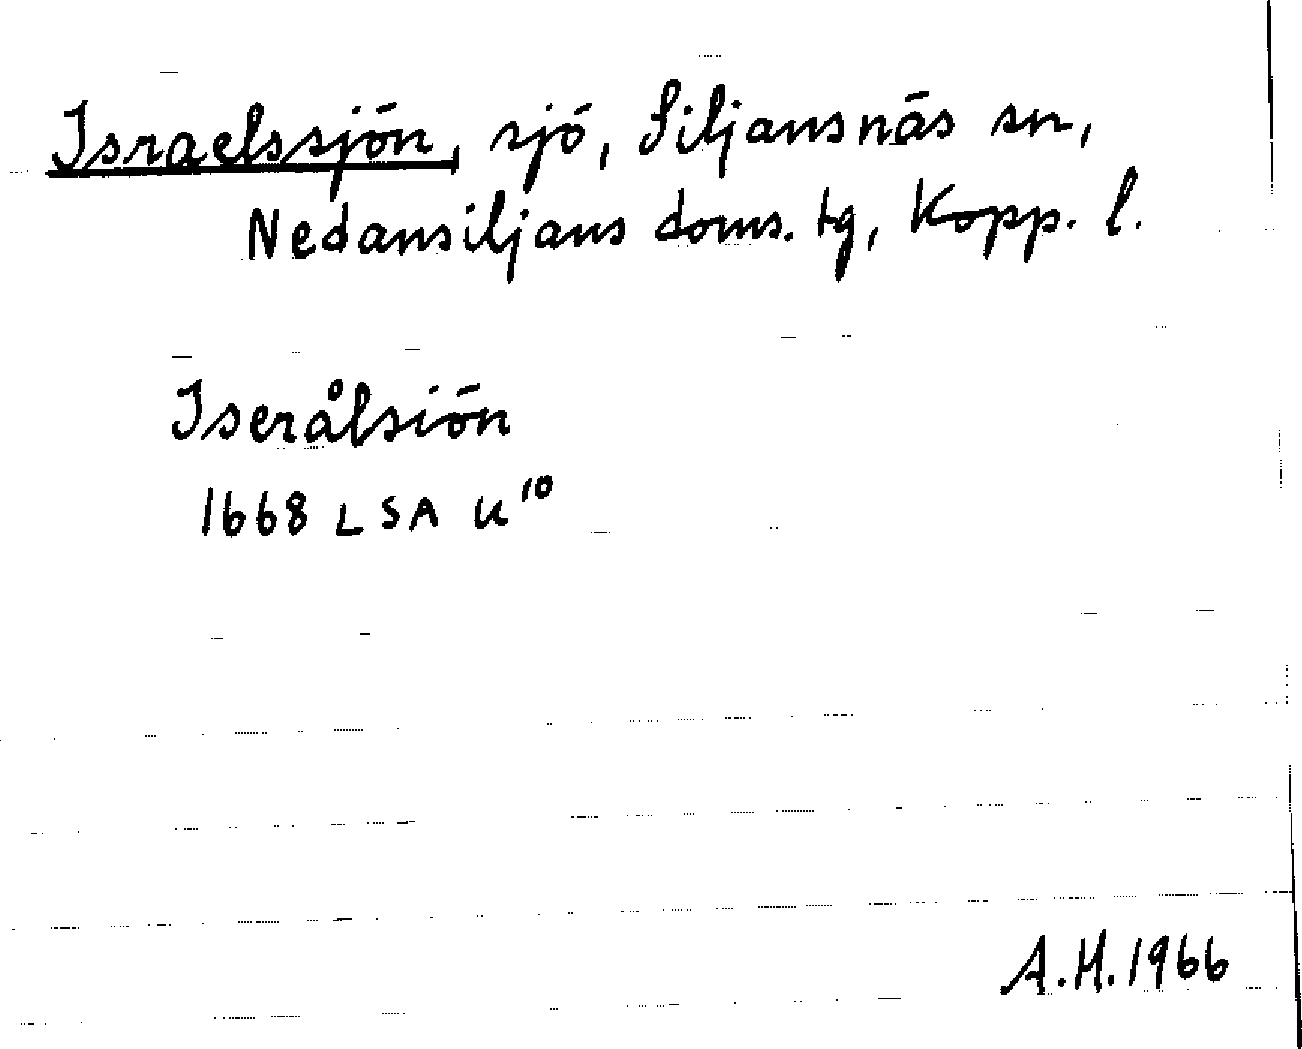 Israelssjön, sjö, Siljansnäs sn,
Nedansiljans doms. tg, Kopp. l.
Iserålsiön
1668 LSA U¹⁰
A.H. 1966